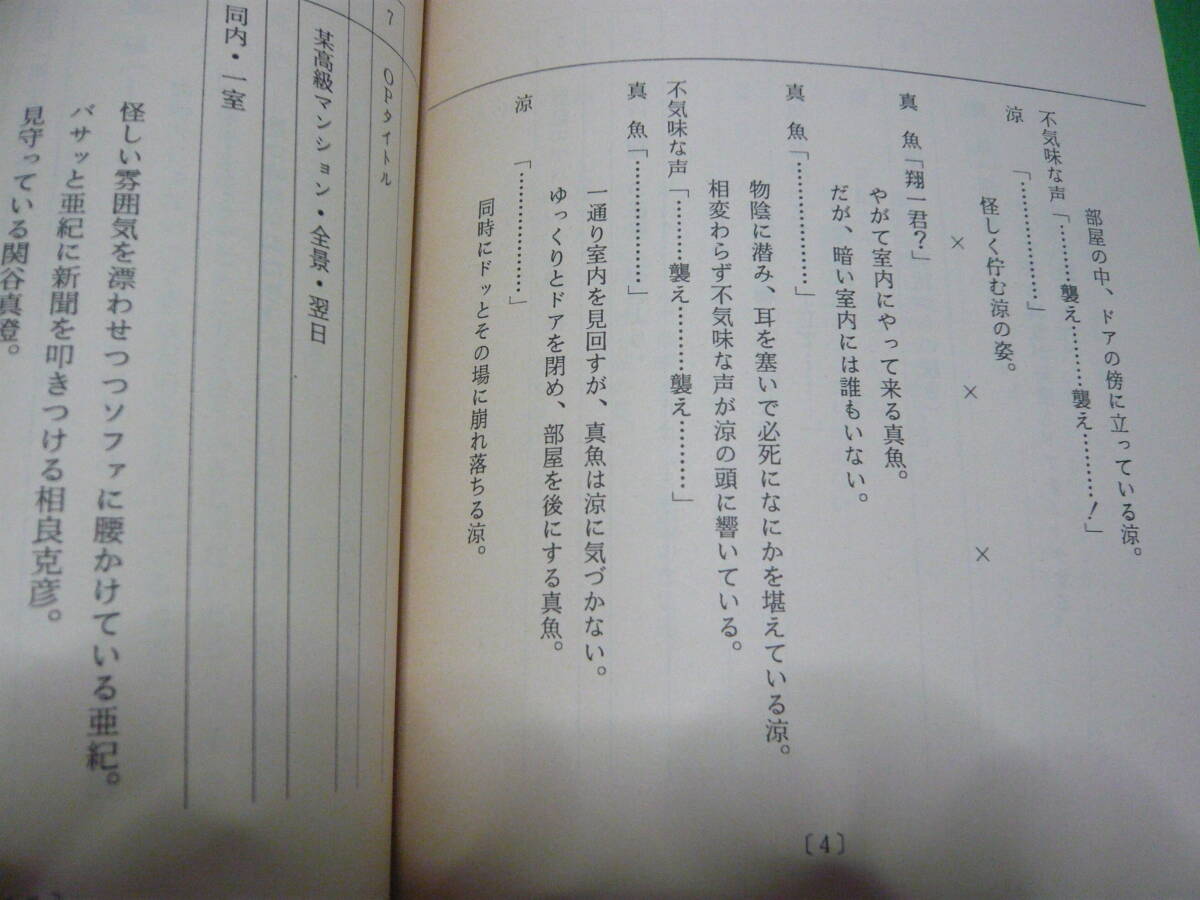 部屋の中、ドアの傍に立っている涼。
不気味な声「………襲え………襲え………！」
涼　「……………」
怪しく佇む涼の姿。
×　×　×
真　魚「翔一君？」
やがて室内にやって来る真魚。
だが、暗い室内には誰もいない。
真　魚「……………」
物陰に潜み、耳を塞いで必死になにかを堪えている涼。
相変わらず不気味な声が涼の頭に響いている。
不気味な声「………襲え………襲え………」
真　魚「……………」
一通り室内を見回すが、真魚は涼に気づかない。
ゆっくりとドアを閉め、部屋を後にする真魚。
涼　「……………」
同時にドッとその場に崩れ落ちる涼。
〔4〕
7　OPタイトル
某高級マンション・全景・翌日
同内・一室
怪しい雰囲気を漂わせつつソファに腰かけている亜紀。
バサッと亜紀に新聞を叩きつける相良克彦。
見守っている関谷真澄。